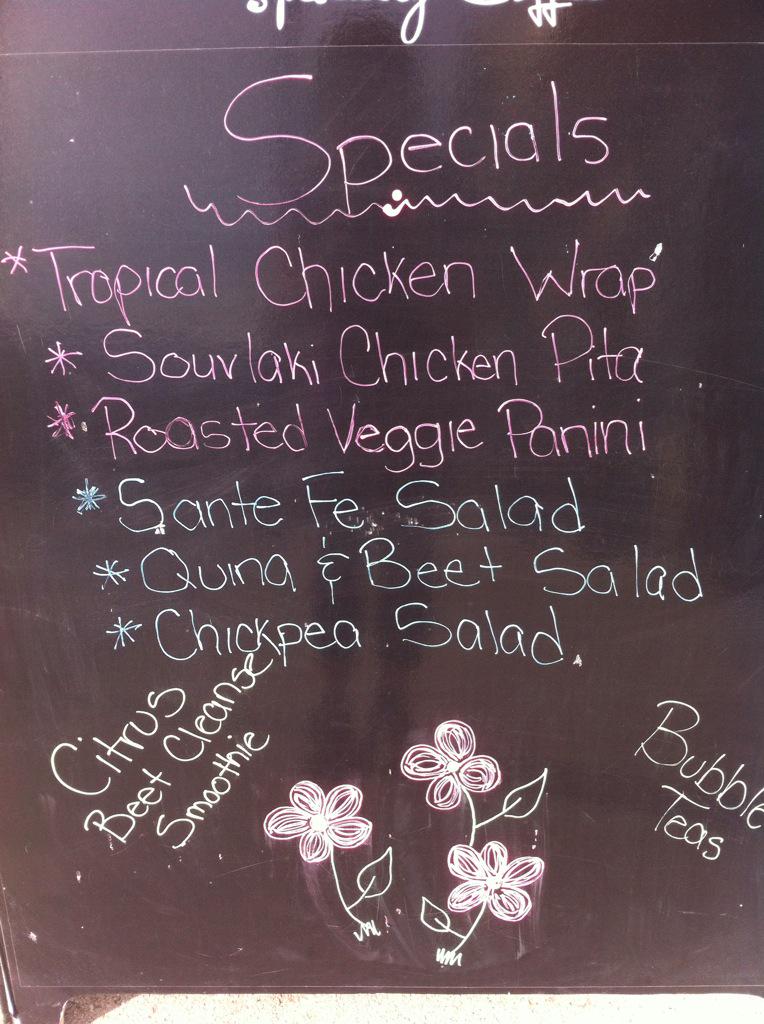 Specials
* Tropical Chicken Wrap
* Souvlaki Chicken Pita
* Roasted Veggie Panini
* Sante Fe Salad
* Quina & Beet Salad
* Chickpea Salad
Citrus
Beet Cleanse
Smoothie
Bubble
Teas